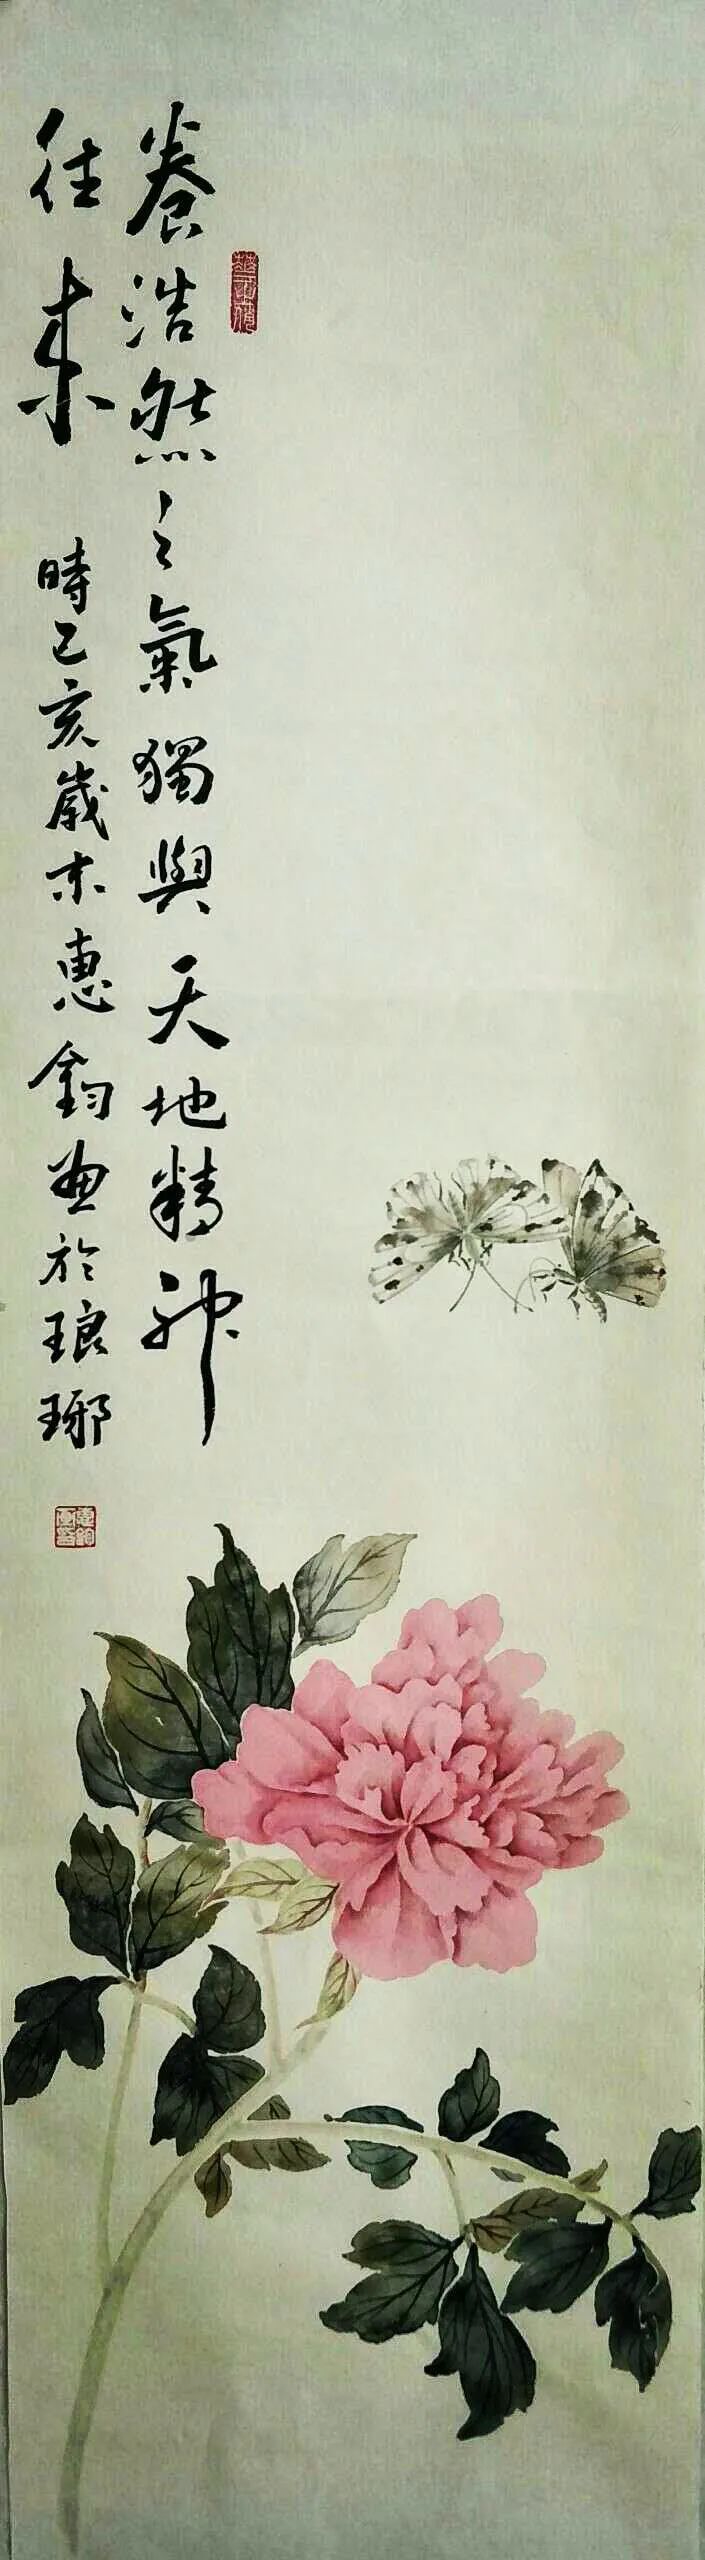 養浩然之氣獨與天地精神
往来
時己亥歲末惠鈞畫於琅琊